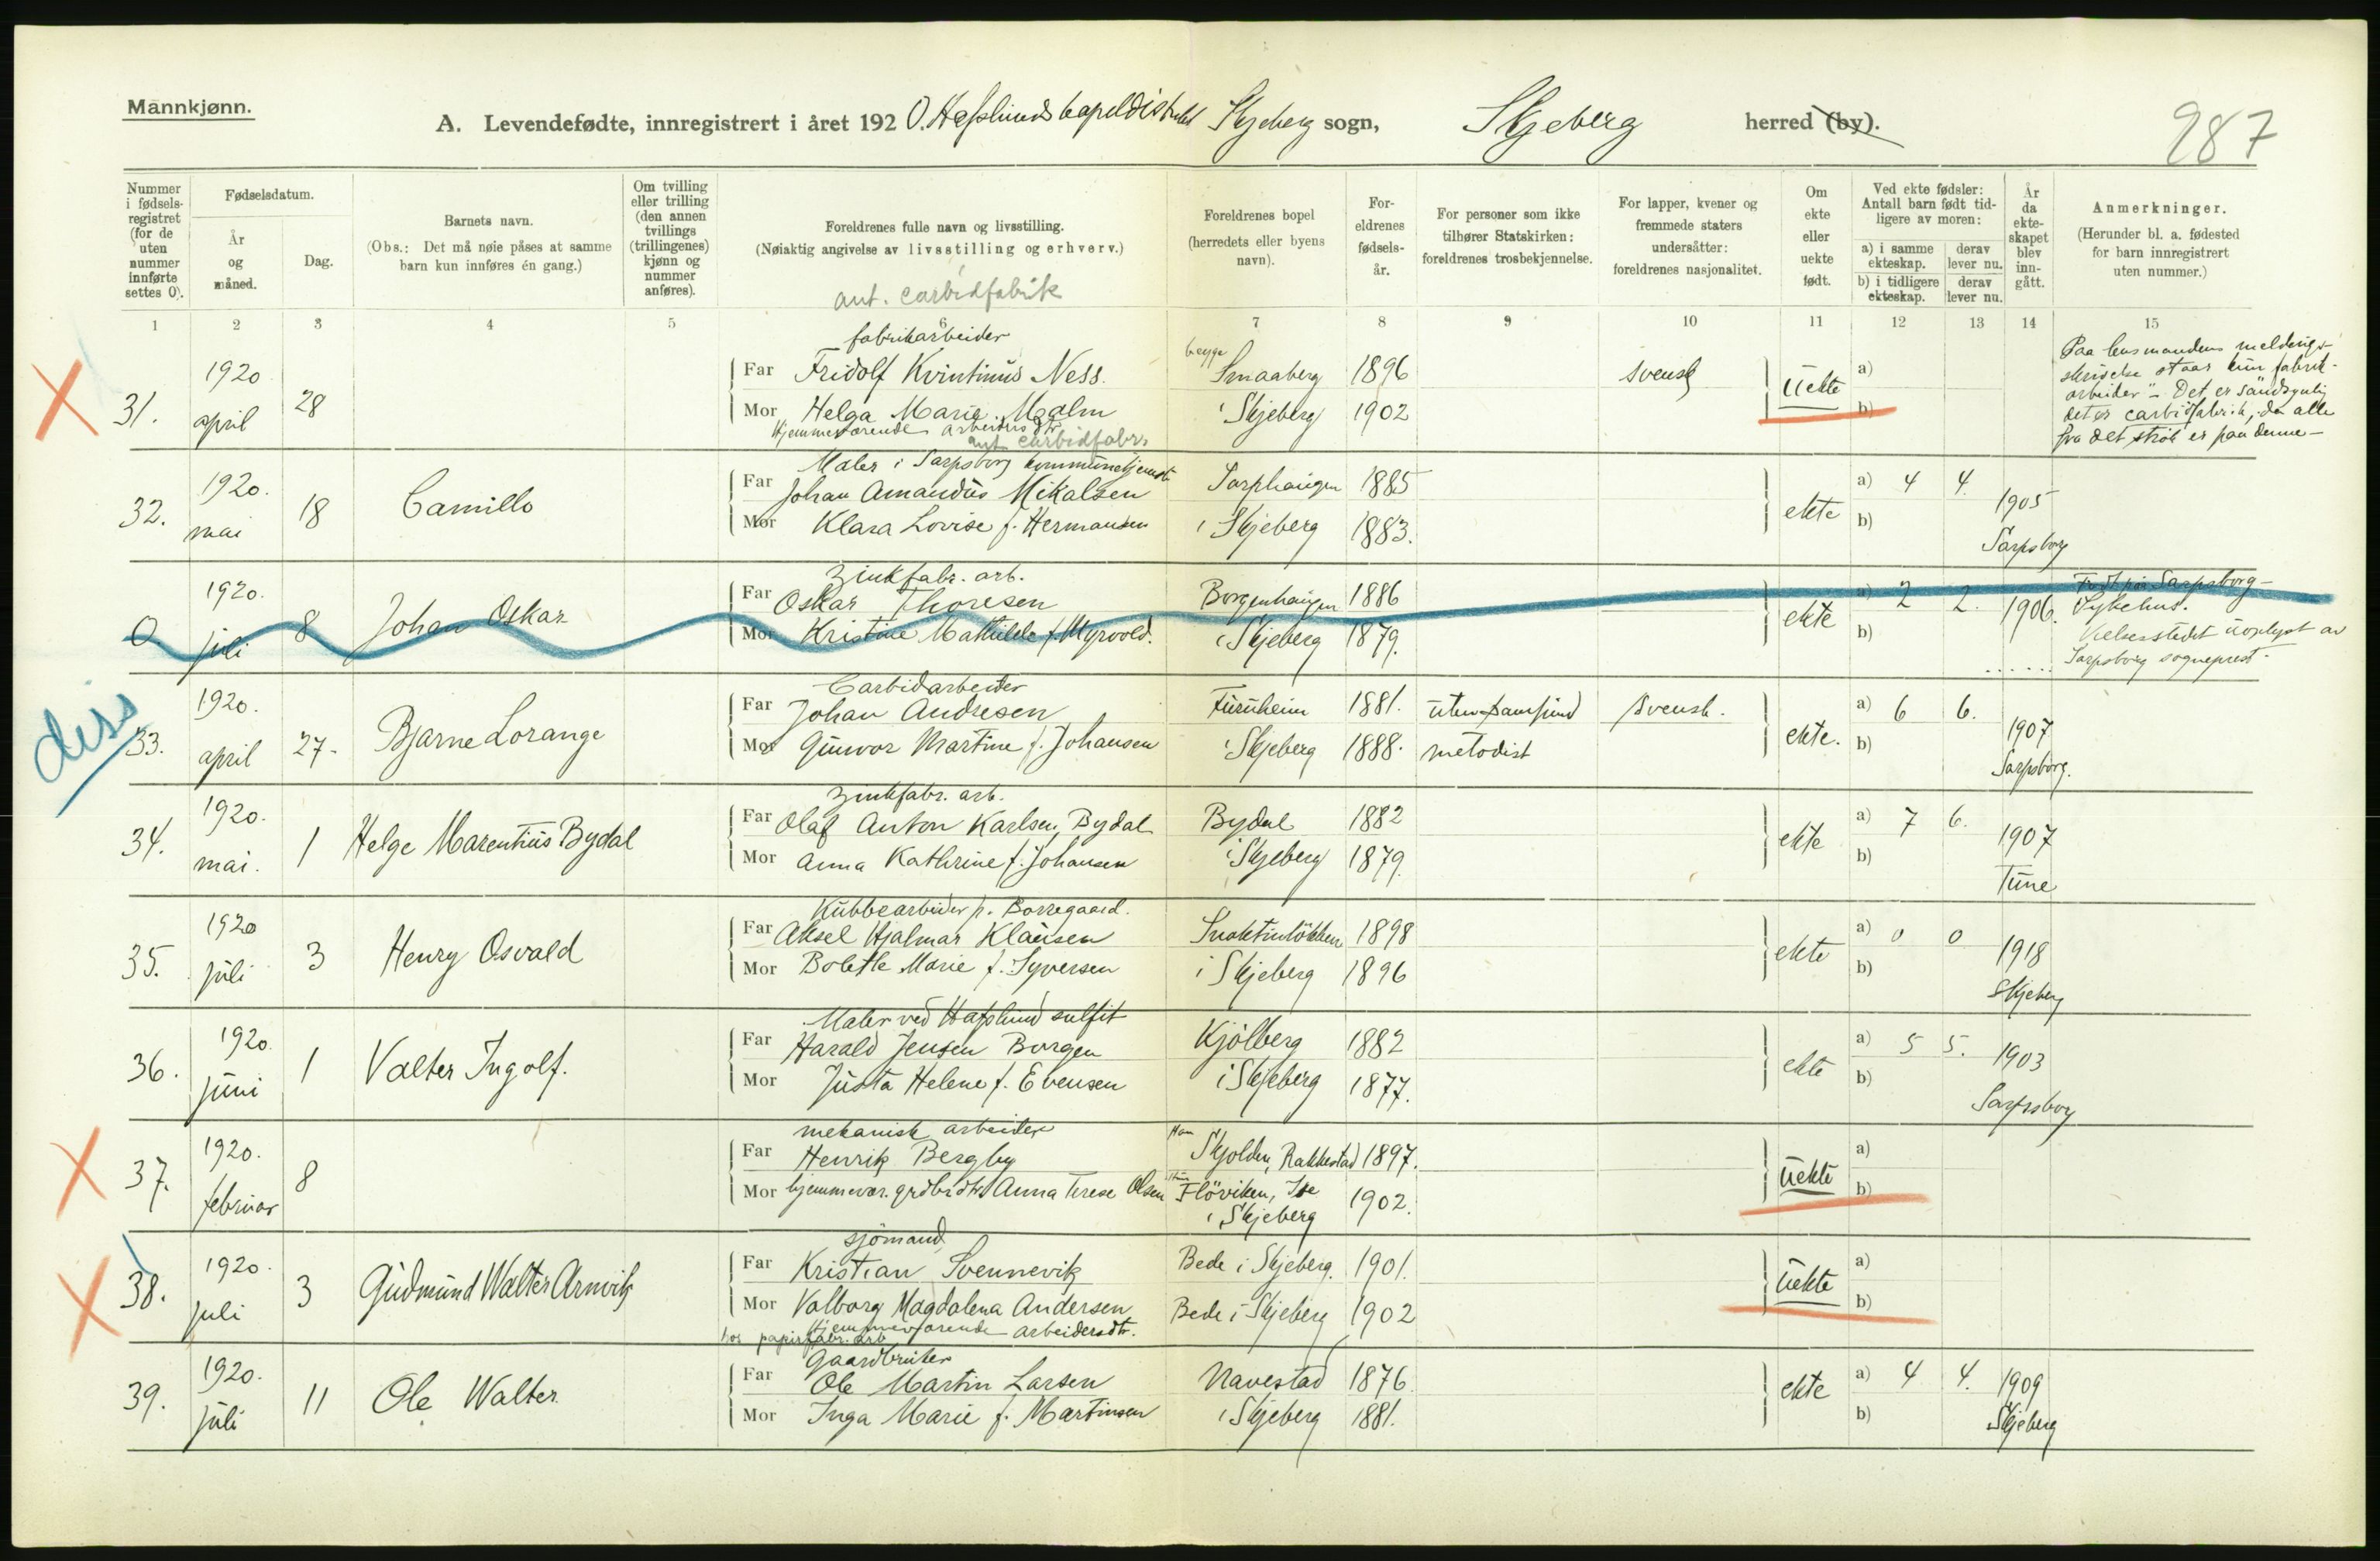 Mannkjønn.
A. Levendefødte, innregistrert i året 1920. Hafslunds kapeldistrikt Skjeberg sogn, Skjeberg herred (by).
287
Nummer i fødselsregistret (for de uten nummer innførte settes 0).
Fødselsdatum.
År og måned.
Dag.
Barnets navn.
(Obs.: Det må nøie påses at samme barn kun innføres én gang.)
Om tvilling eller trilling (den annen tvillings (trillingenes) kjønn og nummer anføres).
Foreldrenes fulle navn og livsstilling.
(Nøiaktig angivelse av livsstilling og erhverv.)
ant. carbidfabrik
Foreldrenes bopel (herredets eller byens navn).
Foreldrenes fødselsår.
For personer som ikke tilhører Statskirken: foreldrenes trosbekjennelse.
For lapper, kvener og fremmede staters undersåtter: foreldrenes nasjonalitet.
Om ekte eller uekte født.
Ved ekte fødsler: Antall barn født tidligere av moren:
a) i samme ekteskap. derav lever nu.
b) i tidligere ekteskap. derav lever nu.
År da ekteskapet blev inngått.
Anmerkninger.
(Herunder bl. a. fødested for barn innregistrert uten nummer.)
1 2 3 4 5 6 7 8 9 10 11 12 13 14 15
fabrikarbeider
31. 1920 april 28
Far Fridolf Kvintinus Ness. begge Smaaberg 1896 svensk uekte a)
Mor Helga Marie Malm i Skjeberg 1902 b)
Hjemmeværende arbeiders dtr.
ant carbidfabr.
Paa lensmandens meldings-
skrivelse staar kun fabrik-
arbeider". Det er sandsynlig
det er carbidfabrik, da alle
fra det strøk er paa denne —
Maler i Sarpsborg kommunetjeneste
32. 1920. mai 18 Camillo
Far Johan Amandus Mikalsen Sarphaugen 1885 ekte a) 4 4. 1905
Mor Klara Lovise f. Hermansen i Skjeberg 1883. b) Sarpsborg
Zinkfabr. arb.
0. 1920. juli 8 Johan Oskar
Far Oskar Thoresen Borgenhaugen 1886 ekte a) 2 2. 1906.
Mor Kristine Mathilde f. Myrvold. i Skjeberg 1879. b)
Født paa Sarpsborg
Sykehus.
Vielsesstedet uoplyst av
Sarpsborg sogneprest.
diss
Carbidarbeider
33. 1920. april 27. Bjarne Lorange
Far Johan Andresen Furuheim 1881. uten samfund svensk. ekte. a) 6 6. 1907
Mor Gunvor Martine f. Johansen i Skjeberg 1888. metodist b) Sarpsborg.
Zinkfabr. arb.
34. 1920. mai. 1 Helge Marentius Bydal
Far Olaf Anton Karlsen Bydal Bydal 1882 ekte a) 7 6. 1907
Mor Anna Kathrine f. Johansen i Skjeberg 1879. b) Tune
Kubbearbeider p. Borregaard.
35. 1920 juli 3 Henry Osvald
Far Aksel Hjalmar Klausen 1898 ekte a) 0 0 1918
Mor Bolette Marie f. Syversen i Skjeberg 1896 b) Skjeberg
Maler ved Hafslund sulfit
36. 1920. juni 1 Valter Ingolf.
Far Harald Jensen Borgen Kjølberg 1882 ekte a) 5 5. 1903
Mor Justa Helene f. Evensen i Skjeberg 1877. b) Sarpsborg
mekanisk arbeider
37. 1920. februar 8
Far Henrik Bergby Han Skjolden, Rakkestad 1897. uekte a)
Mor hjemmevær. grdbr.dtr. Anna Terese Olsen Fløviken, Ise i Skjeberg 1902. b)
sjømand
38. 1920. juli 3 Gudmund Walter Arnvik
Far Kristian Svennevik Bede i Skjeberg. 1901. uekte a)
Mor Valborg Magdalena Andersen Bede i Skjeberg 1902 b)
Hjemmeværende arbeidersdtr.
hos papirfabr. arb
Gaardbruker
39. 1920. juli 11 Ole Walter
Far Ole Martin Larsen Navestad 1876 ekte a) 4 4. 1909
Mor Inga Marie f. Martinsen i Skjeberg 1881. b) Skjeberg